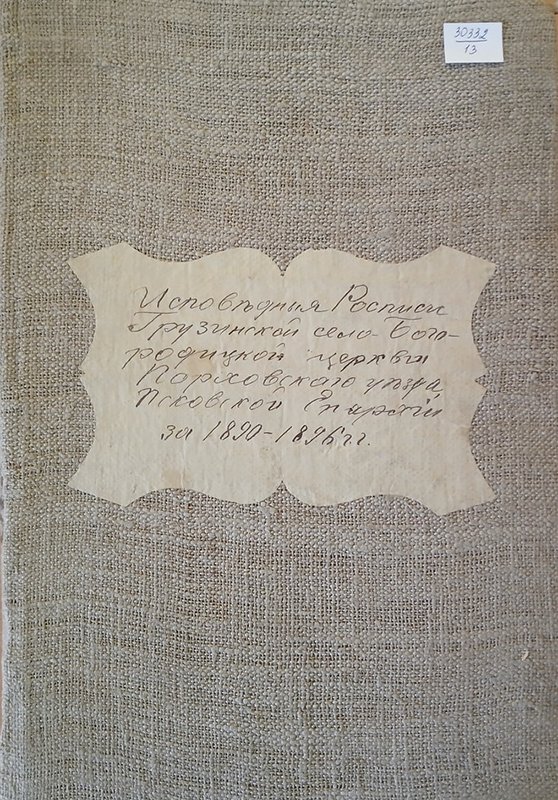 30332
13
Исповѣдныя Росписи
Грузинской село-Бого-
родицкой церкви
Порховскаго уѣзда
Псковской Епархіи
за 1890-1896 г.г.